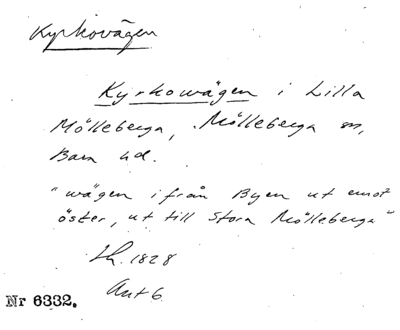 Kyrkovägen
Kyrkowägen i Lilla
Mölleberga, Mölleberga sn,
Bara hd.
"wägen ifrån Byen ut emot
öster, ut till Stora Mölleberga"
1828
Ant 6
Nr 6332.